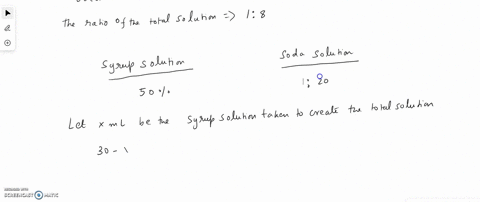 the ratio of the total solution => 1:8
Syrup solution
Soda solution
50%
1: 20
Let x mL be the Syrup solution taken to create the total solution
30 -
RECORDED WITH
SCREENCAST MATIC